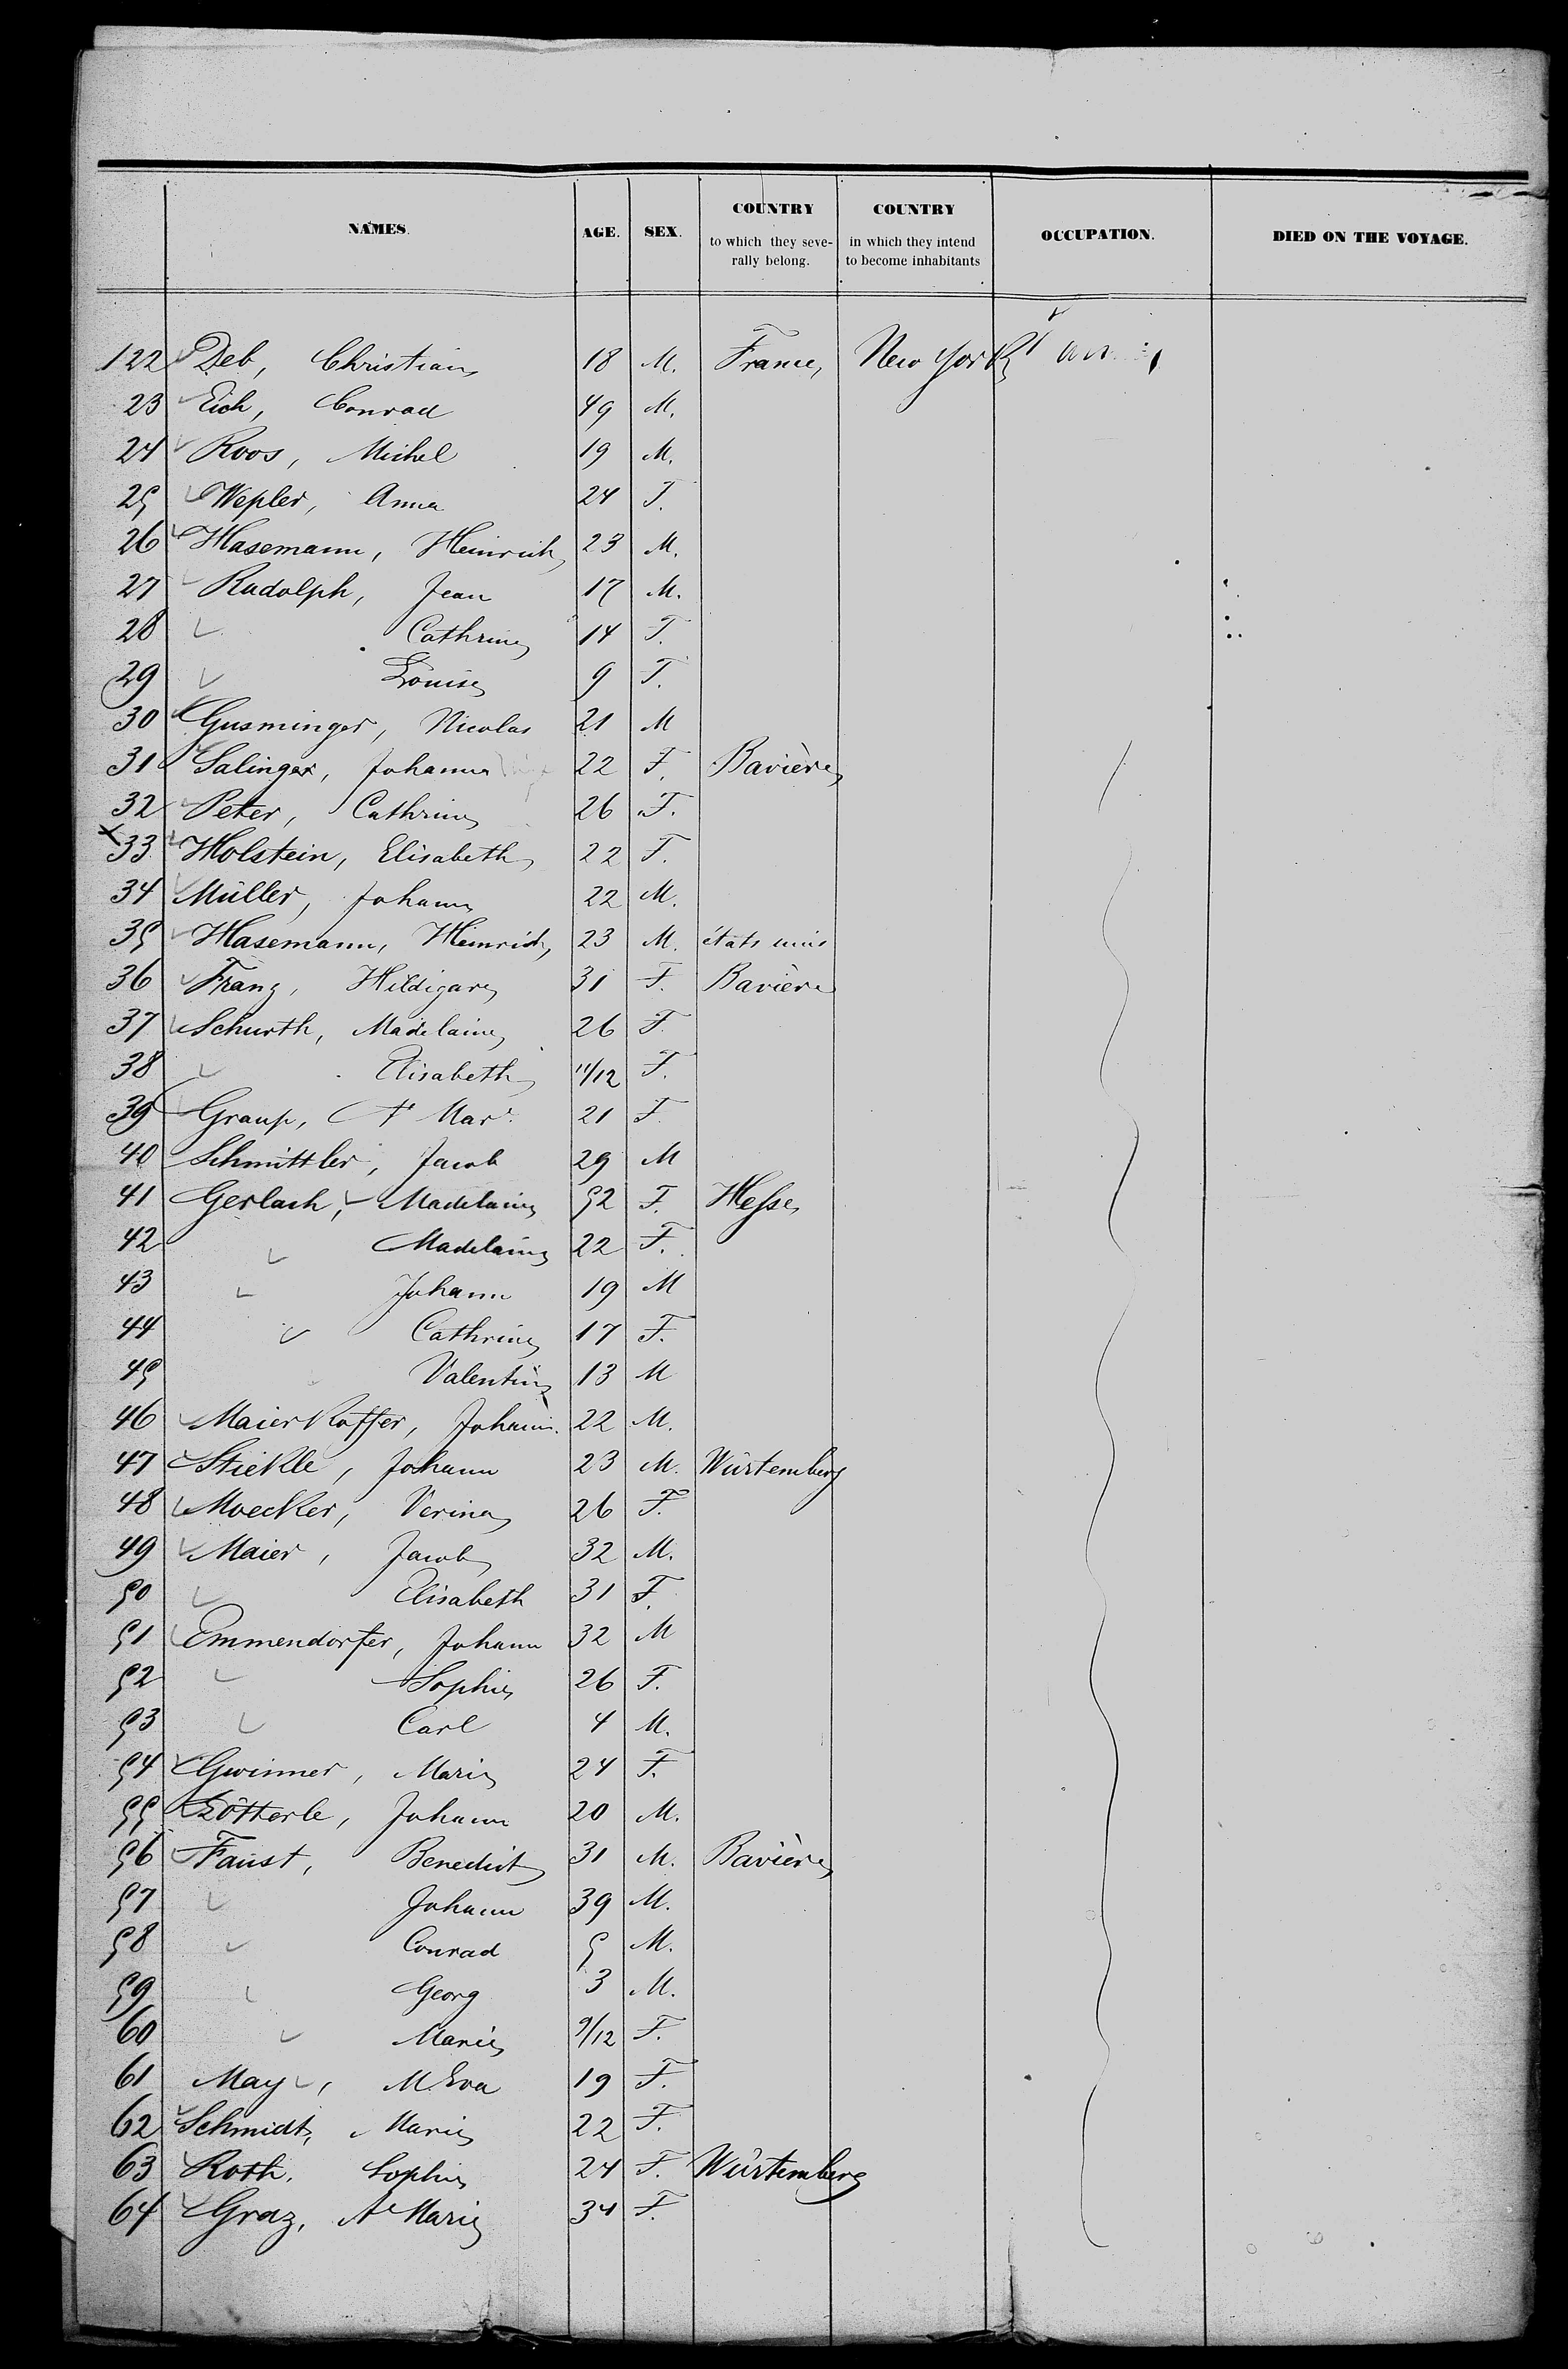 NAMES. AGE. SEX. COUNTRY to which they severally belong. COUNTRY in which they intend to become inhabitants OCCUPATION. DIED ON THE VOYAGE.
122 Deb, Christian 18 M. France, New York
23 Eich, Conrad 49 M.
24 Roos, Michel 19 M.
25 Wepler, Anna 24 F.
26 Hasemann, Heinrich 23 M.
27 Rudolph, Jean 17 M.
28 Cathrine 14 F.
29 Louise 9 F.
30 Gusminger, Nicolas 21 M
31 Salinger, Johanna 22 F. Bavière
32 Peter, Cathrine 26 F.
x 33 Holstein, Elisabeth 22 F.
34 Müller, Johann 22 M.
35 Hasemann, Heinrich, 23 M. états unis
36 Franz, Hildigard 31 F. Bavière
37 Schurth, Madelaine 26 F.
38 Elisabeth 11/12 F.
39 Graup, Mar. 21 F.
40 Schmittler, Jacob 29 M
41 Gerlach, Madelaine 52 F. Hesse,
42 Madelaine 22 F.
43 Johann 19 M
44 Cathrine 17 F.
45 Valentin 13 M
46 Maierkoffer, Johann. 22 M.
47 Stiekle, Johann 23 M. Würtemberg
48 Moecker, Verina 26 F.
49 Maier, Jacob 32 M.
50 Elisabeth 31 F.
51 Emmendorfer, Johann 32 M
52 Sophie 26 F.
53 Carl 4 M.
54 Gwinner, Marie 24 F.
55 Zötterle, Johann 20 M.
56 Faust, Benedict 31 M. Bavière
57 Johann 39 M.
58 Conrad 5 M.
59 Georg 3 M.
60 Marie 9/12 F.
61 May, M. Eva 19 F.
62 Schmidt, Marie 22 F.
63 Roth, Sophie 24 F. Würtemberg
64 Graz, A Marie 34 F.